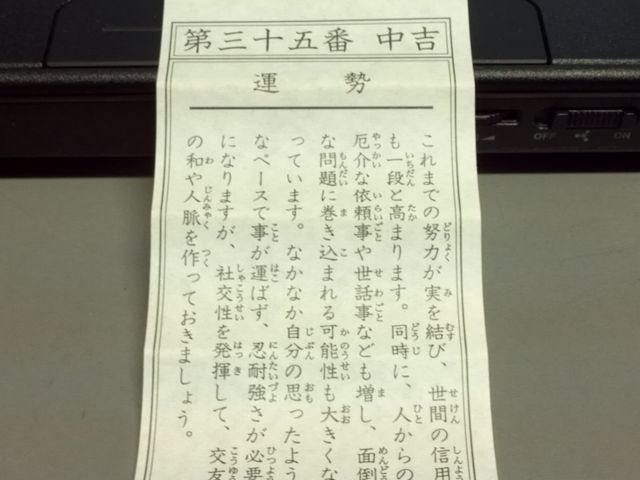 第三十五番 中吉
運勢
これまでの努力が実を結び、世間の信用
も一段と高まります。同時に、人からの
厄介な依頼事や世話事なども増し、面倒
な問題に巻き込まれる可能性も大きくな
っています。なかなか自分の思ったよう
なペースで事が運ばず、忍耐強さが必要
になりますが、社交性を発揮して、交友
の和や人脈を作っておきましょう。
OFF ON